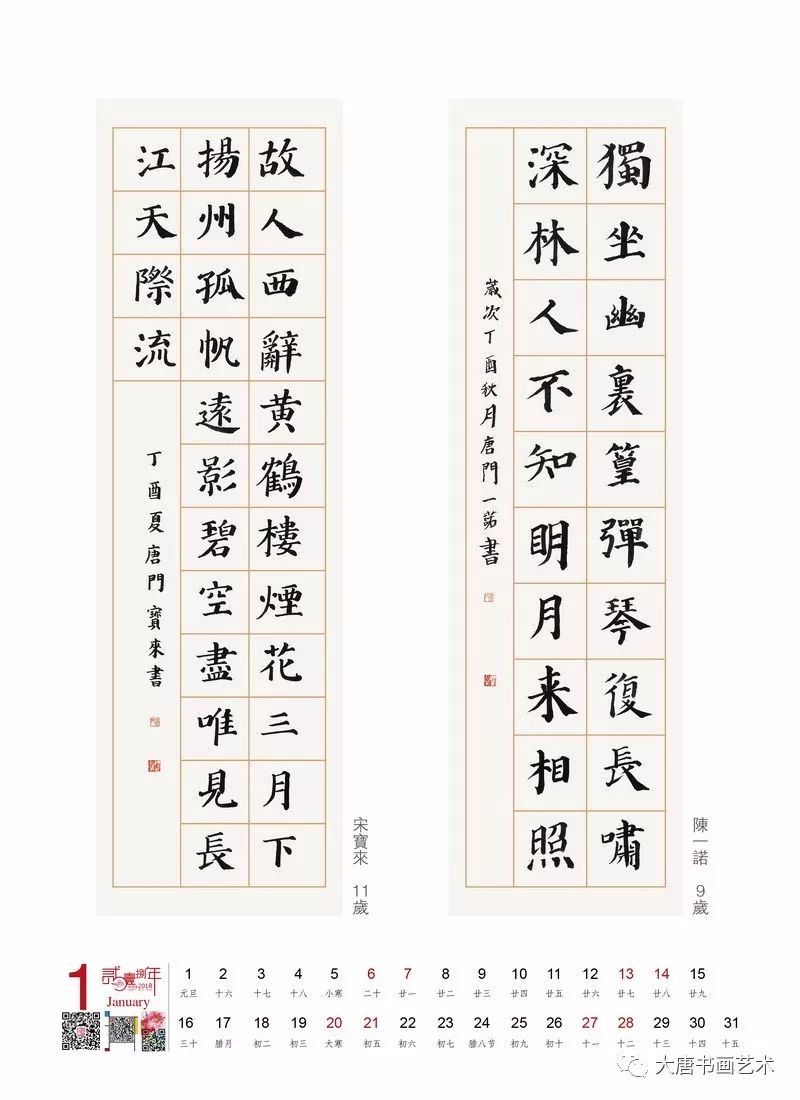 獨坐幽裏篁彈琴復長嘯
深林人不知明月来相照
歲次丁酉秋月唐門一諾書
陳一諾 9歲
故人西辭黃鶴樓煙花三月下
揚州孤帆遠影碧空盡唯見長
江天際流
丁酉夏唐門寶來書
宋寶來 11歲
1
貳〇壹捌年
2018
January
1 2 3 4 5 6 7 8 9 10 11 12 13 14 15
元旦 十六 十七 十八 小寒 二十 廿一 廿二 廿三 廿四 廿五 廿六 廿七 廿八 廿九
16 17 18 19 20 21 22 23 24 25 26 27 28 29 30 31
三十 腊月 初二 初三 大寒 初五 初六 初七 腊八节 初九 初十 十一 十二 十三 十四 十五
大唐书画艺术